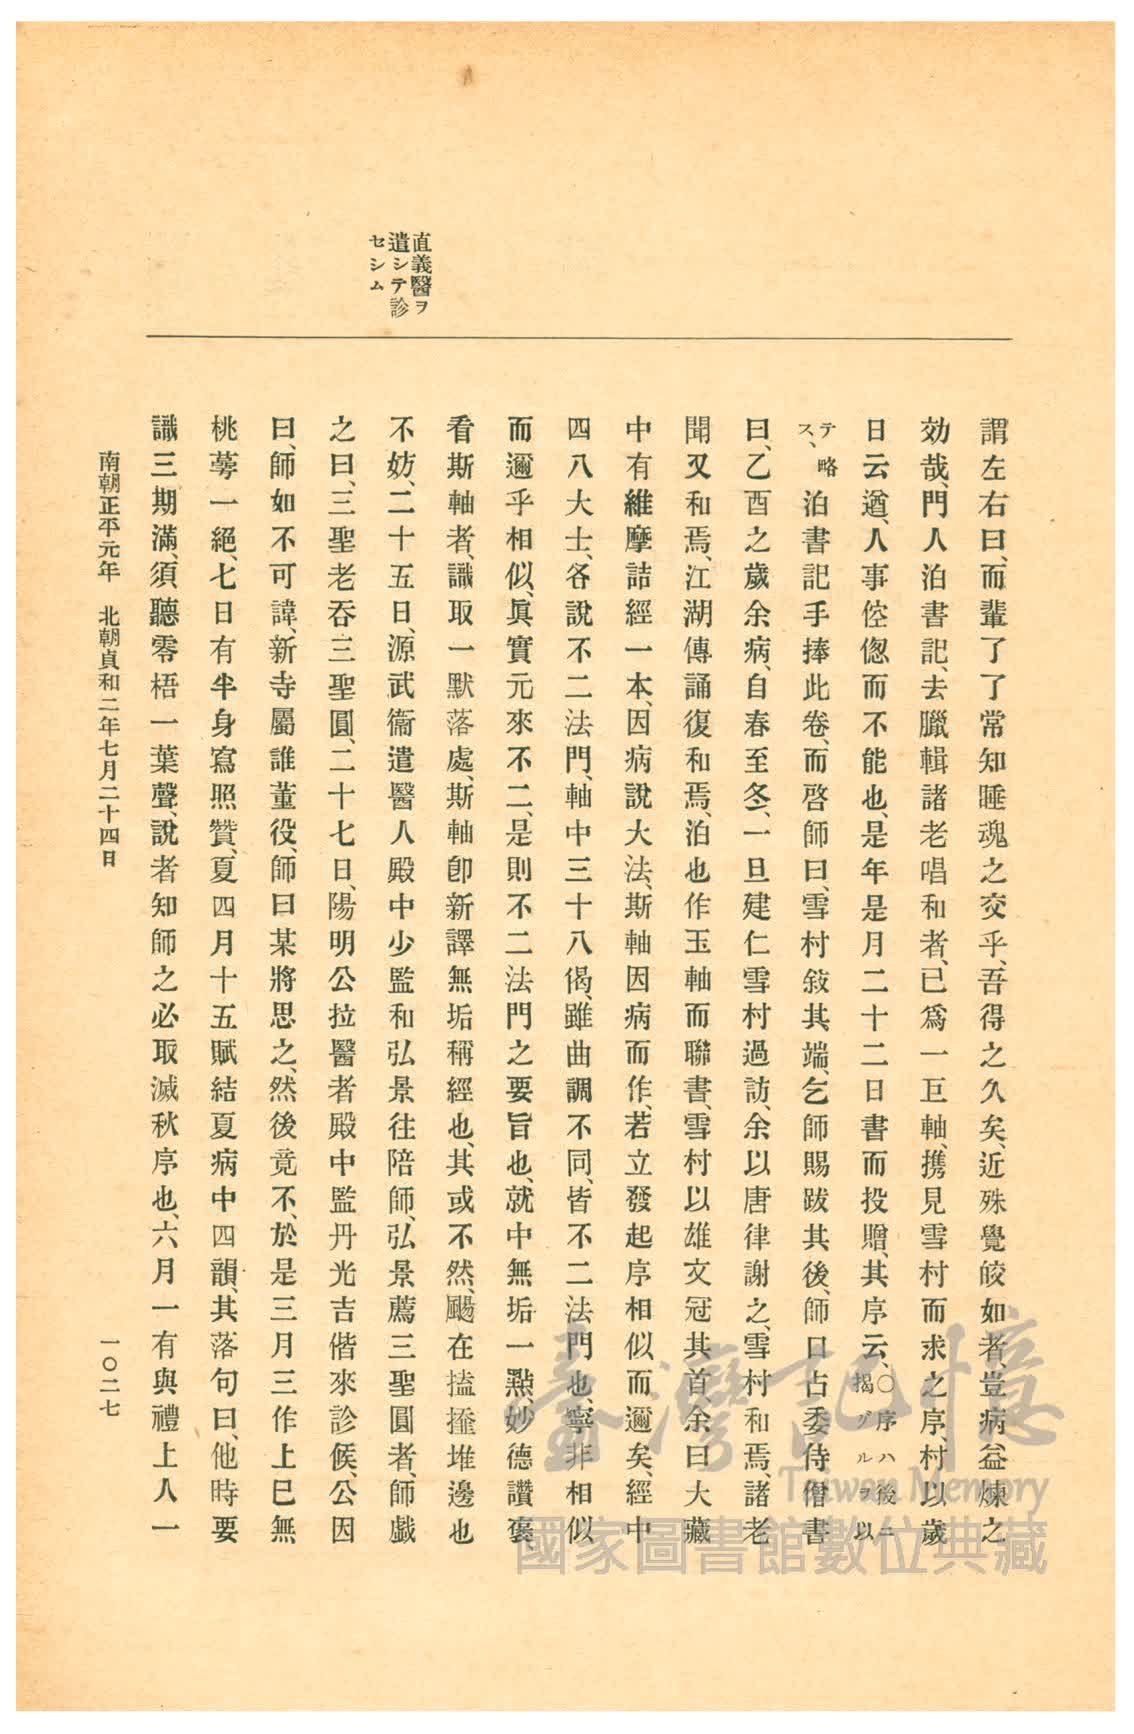 直義醫ヲ
遣シテ診
セシム
謂左右曰、而輩了了常知睡魂之交乎、吾得之久矣、近殊覺皎如者、豈病益煉之
効哉、門人泊書記、去臘輯諸老唱和者、已爲一巨軸、携見雪村而求之序、村以歲
日云遒、人事倥偬而不能也、是年是月二十二日書而投贈、其序云、〇序ハ後ニ揭グルヲ以
テ略ス、泊書記手捧此卷、而啓師曰、雪村敍其端、乞師賜跋其後、師口占委侍僧書
曰、乙酉之歲余病、自春至冬、一旦建仁雪村過訪、余以唐律謝之、雪村和焉、諸老
聞又和焉、江湖傳誦復和焉、泊也作玉軸而聯書、雪村以雄文冠其首、余曰大藏
中有維摩詰經一本、因病說大法、斯軸因病而作、若立發起序相似、而邇矣、經中
四八大士、各說不二法門、軸中三十八偈、雖曲調不同、皆不二法門也、寧非相似
而邇乎相似、眞實元來不二、是則不二法門之要旨也、就中無垢一點、妙德讚褒、
看斯軸者、識取一默落處、斯軸卽新譯無垢稱經也、其或不然、颺在搕𢶍堆邊也
不妨、二十五日、源武衞遣醫人殿中少監和弘景往陪師、弘景薦三聖圓者、師戲
之曰、三聖老吞三聖圓、二十七日、陽明公拉醫者殿中監丹光吉偕來診候、公因
曰、師如不可諱、新寺屬誰董役、師曰某將思之、然後竟不、於是三月三作上巳無
桃蕚一絕、七日有半身寫照贊、夏四月十五賦結夏病中四韻、其落句曰、他時要
識三期滿、須聽零梧一葉聲、說者知師之必取滅秋序也、六月一有與禮上人一
南朝正平元年　北朝貞和二年七月二十四日
一〇二七
臺灣記憶
Taiwan Memory
國家圖書館數位典藏